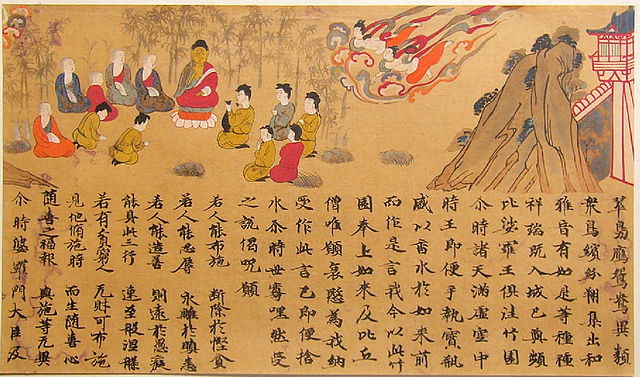 翠鳧鴈鴛鴦異類
衆鳥繽紛翔集出和
雅音有如是等種種
祥瑞既入城已與頻
毗娑羅王俱往竹園
尒時諸天滿虛空中
時王即便手執寶瓶
盛以香水於如來前
而作是言我今以此竹
園奉上如來及比丘
僧唯願哀愍為我納
受作此言已即便捨
水尒時世尊嘿然受
之說偈呪願
若人能布施 斷除於慳貪
若人能忍辱 永離於瞋恚
若人能造善 則遠於愚癡
能具此三行 速至般涅槃
若有貧窮人 无財可布施
見他脩施時 而生隨喜心
隨喜之福報 與施等无異
尒時婆羅門大臣及